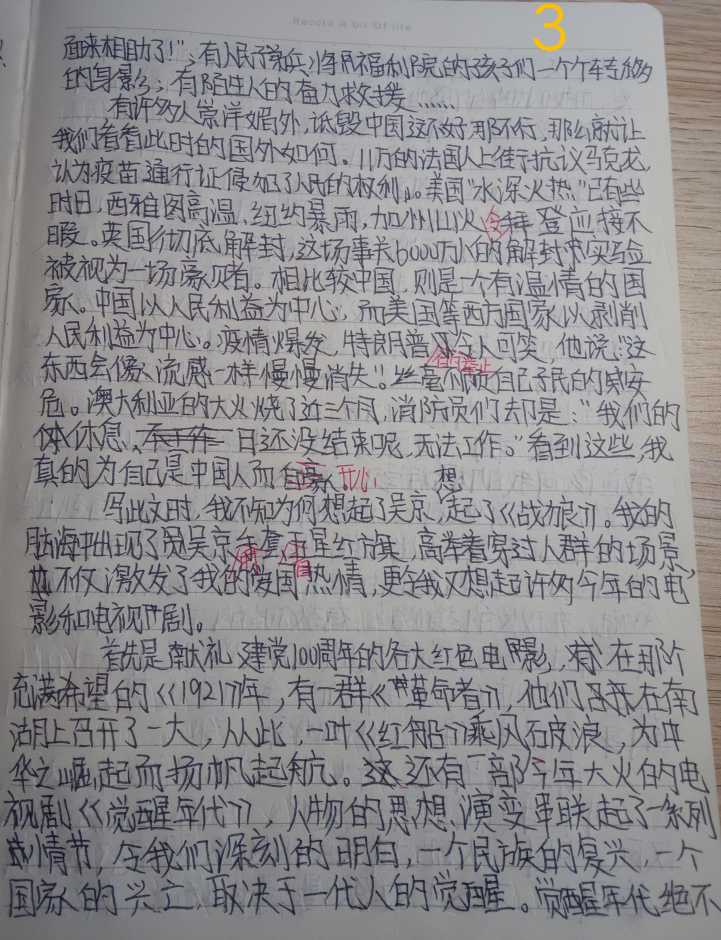 Record A bit Of life
3
面来相助了!”;有人民子弟兵,将儿福利院的孩子们一个个转移
的身影;有陌生人的奋力救援……
有许多人崇洋媚外,诋毁中国这不好那不行,那么就让
我们看看此时的国外如何。11万的法国人上街抗议马克龙,
认为疫苗通行证侵犯了人民的权利。美国“水深火热”已有些
时日,西雅图高温、纽约暴雨,加州山火令拜登应接不
暇。英国彻底解封,这场事关6000万人的解封实验
被视为一场豪赌。相比较中国,则是一个有温情的国
家。中国以人民利益为中心,而美国等西方国家以剥削
人民利益为中心。疫情爆发,特朗普令人可笑,他说:“这
东西会像流感一样慢慢消失”。丝毫不顾自己子民的安
危。澳大利亚的大火烧了近三个月,消防员们却是:“我们的
休息日还没结束呢,无法工作。”看到这些,我
真的为自己是中国人而自豪 开心
写此文时,我不知为何想起了吴京,想起了《战狼》。我的
脑海中出现了吴京手套五星红旗,高举着穿过人群的场景,
不仅激发了我的爱国热情,更令我又想起许多今年的电
影和电视剧。
首先是献礼建党100周年的各大红色电影,在那个
充满希望的《1921》年,有一群《革命者》,他们在南
湖上召开了一大,从此,一叶《红船》乘风破浪,为中
华之崛起而扬帆起航。还有一部今年大火的电
视剧《觉醒年代》,人物的思想演变串联起了一系列
情节,令我们深刻的明白,一个民族的复兴,一个
国家的兴立,取决于一代人的觉醒。觉醒年代绝不